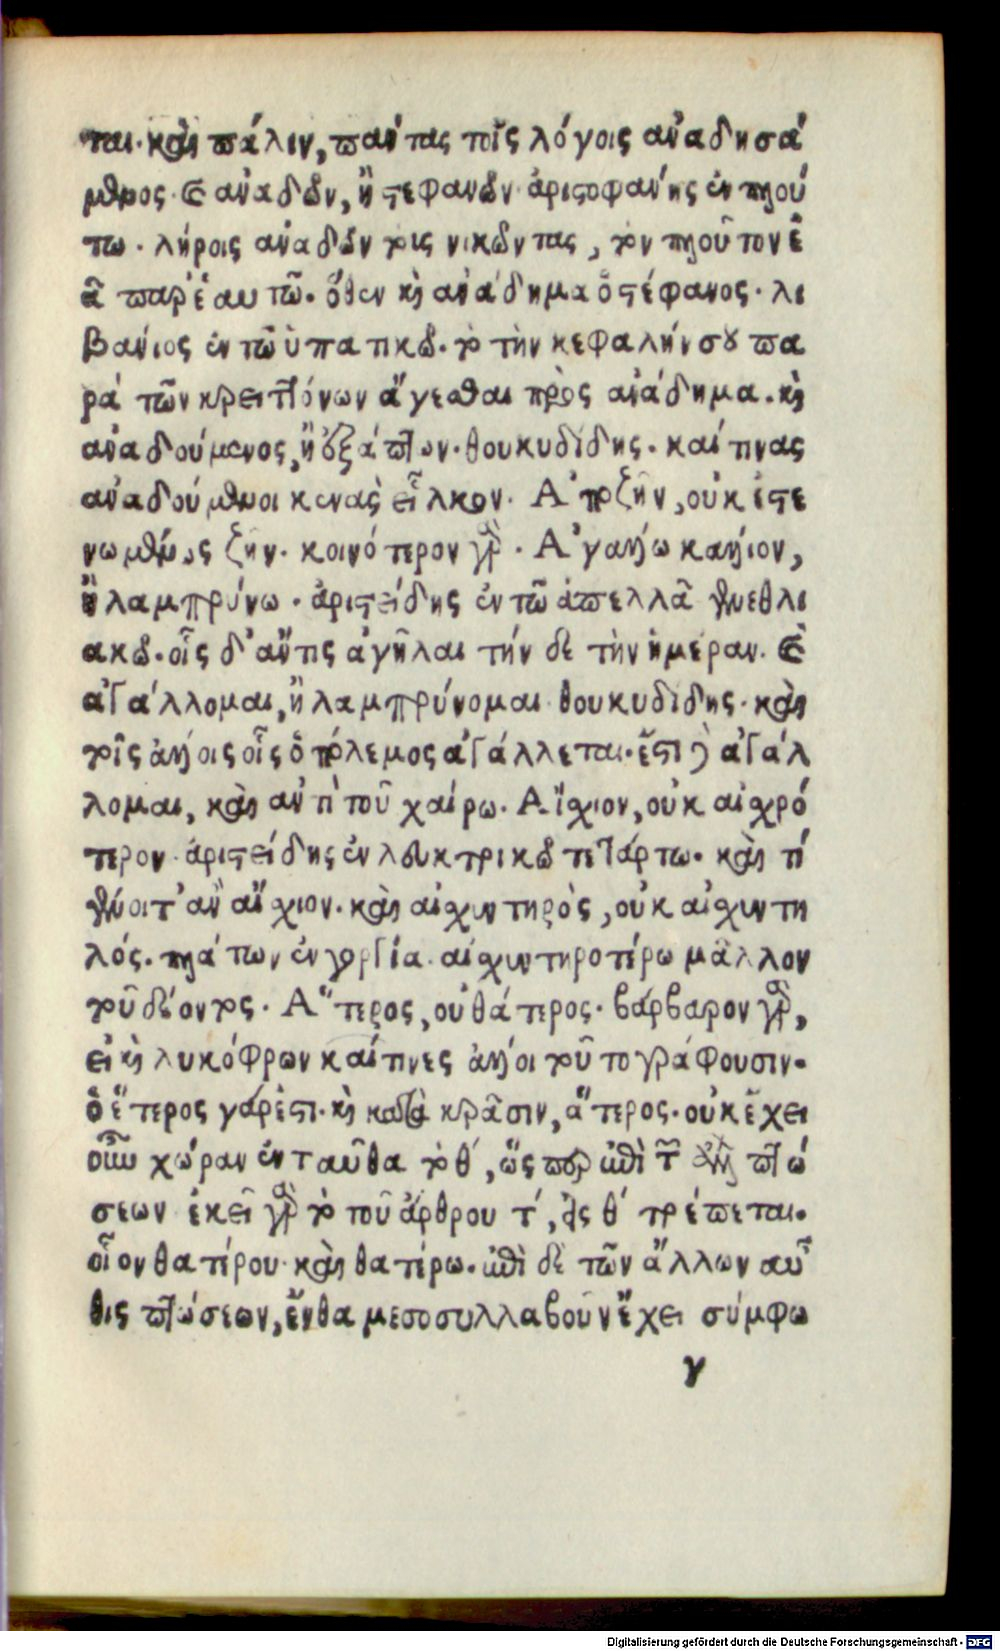 ται. καὶ πάλιν, πάντας τοῖς λόγοις ἀναδησά
μενος. καὶ ἀναδῶν, ἢ στεφανῶν. ἀριστοφάνης ἐν πλού
τω. λήροις ἀναδῶν τοὺς νικῶντας, τὸν πλοῦτον ἐ
ᾶ παρ' ἑαυτῶ. ὅθεν καὶ ἀνάδημα ὁ στέφανος. λι
βάνιος ἐν τῶ ὑπατικῶ. τὸ τὴν κεφαλήν σου πα
ρὰ τῶν κρειττόνων ἄγεσθαι πρὸς ἀνάδημα. καὶ
ἀναδούμενος, ἢ ἐξάπτων. θουκυδίδης. καί τινας
ἀναδούμενοι κενὰς εἷλκον. Ἀτρζῆν, οὐκ ἐστε
νωμένως ζῆν. κοινότερον γάρ. Ἀγάλλω κάλλιον,
ἢ λαμπρύνω. ἀριστείδης ἐν τῶ ἀπελλᾶ γενεθλι
ακῶ. οἷς δ' ἄν τις ἀγῆλαι τήν δε τὴν ἡμέραν. καὶ
ἀγάλλομαι, ἢ λαμπρύνομαι. θουκυδίδης. καὶ
τοῖς ἄλλοις οἷς ὁ πόλεμος ἀγάλλεται. ἔστι δὲ ἀγάλ
λομαι, καὶ ἀντὶ τοῦ χαίρω. Αἴσχιον, οὐκ αἰσχρό
τερον. ἀριστείδης ἐν λευκτρικῶ τετάρτω. καὶ τί
γένοιτ' ἂν αἴσχιον. καὶ αἰσχυντηρὸς, οὐκ αἰσχυντη
λός. πλάτων ἐν γοργία. αἰσχυντηροτέρω μᾶλλον
τοῦ δέοντος. Ἅτερος, οὐ θάτερος. βάρβαρον γάρ,
εἰ καὶ λυκόφρων καί τινες ἄλλοι τοῦτο γράφουσιν.
ὁ ἕτερος γάρ ἐστι. καὶ κατὰ κρᾶσιν, ἅτερος. οὐκ ἔχει
οὖν χώραν ἐνταῦθα τὸ θ, ὥσπερ ἐπὶ τῶν ἄλλων πτώ
σεων. ἐκεῖ γὰρ τὸ τοῦ ἄρθρου τ, εἰς θ τρέπεται.
οἷον θατέρου καὶ θατέρω. ἐπὶ δὲ τῶν ἄλλων αὖ
θις πτώσεων, ἔνθα μεσοσυλλαβοῦν ἔχει σύμφω
γ